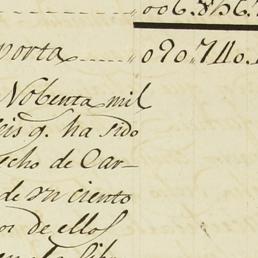 006.856.
porta 090.740.
Nobenta mil
eis q. ha sido
echo de Car-
de un ciento
os de ellos